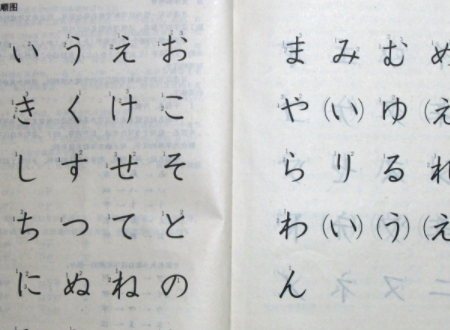 顺图
い う え お
き く け こ
し す せ そ
ち つ て と
に ぬ ね の
ま み む め
や (い) ゆ (え
ら り る れ
わ (い) (う) (え
ん